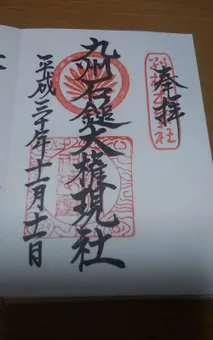 奉拝
九州石鎚大権現社
平成三十年十一月十一日